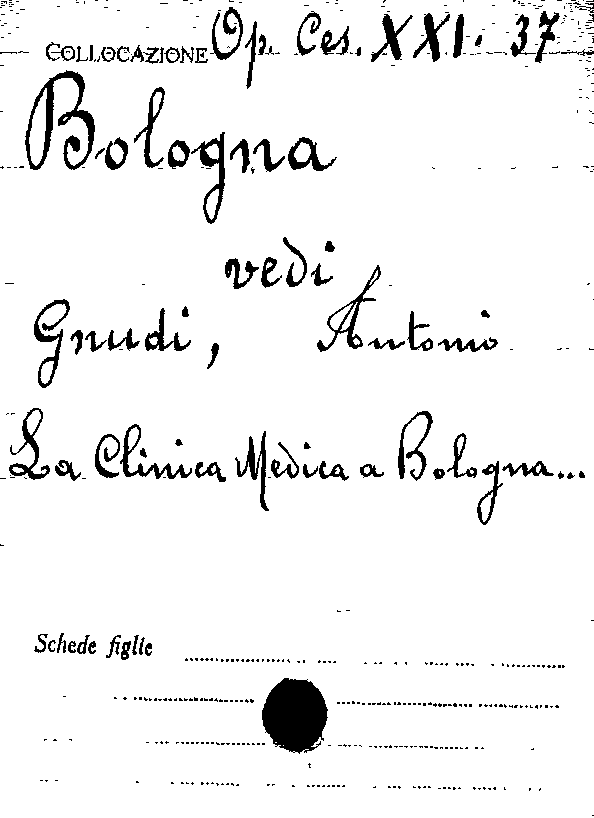 COLLOCAZIONE Op. Ces. XXI. 37
Bologna
vedi
Gnudi, Antonio
La Clinica Medica a Bologna...
Schede figlie